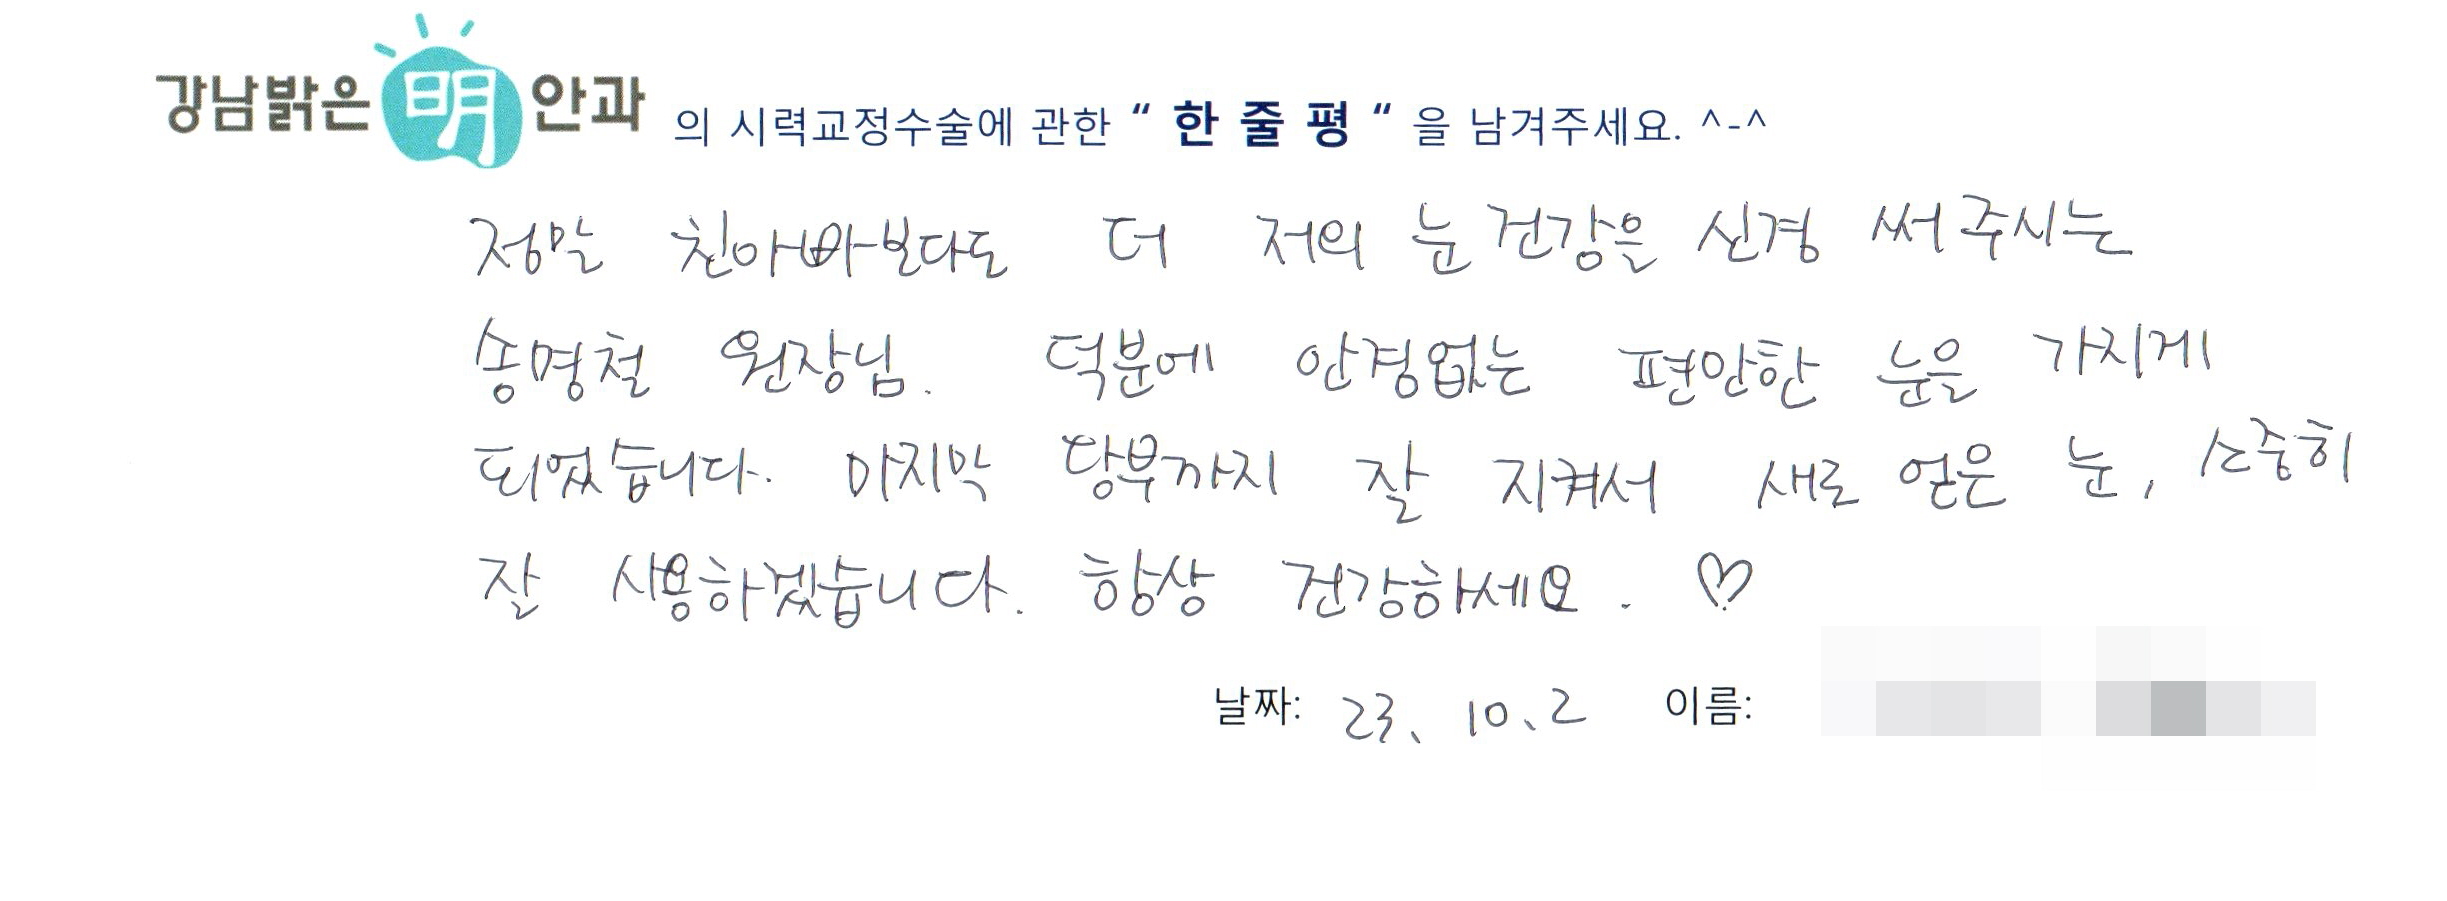 강남밝은明안과 의 시력교정수술에 관한 “ 한 줄 평 “ 을 남겨주세요. ^-^
정말 친아빠보다도 더 저의 눈 건강을 신경 써주시는
송명철 원장님. 덕분에 안경없는 편안한 눈을 가지게
되었습니다. 마지막 당부까지 잘 지켜서 새로 얻은 눈, 소중히
잘 사용하겠습니다. 항상 건강하세요. ♡
날짜: 23. 10. 2 이름: